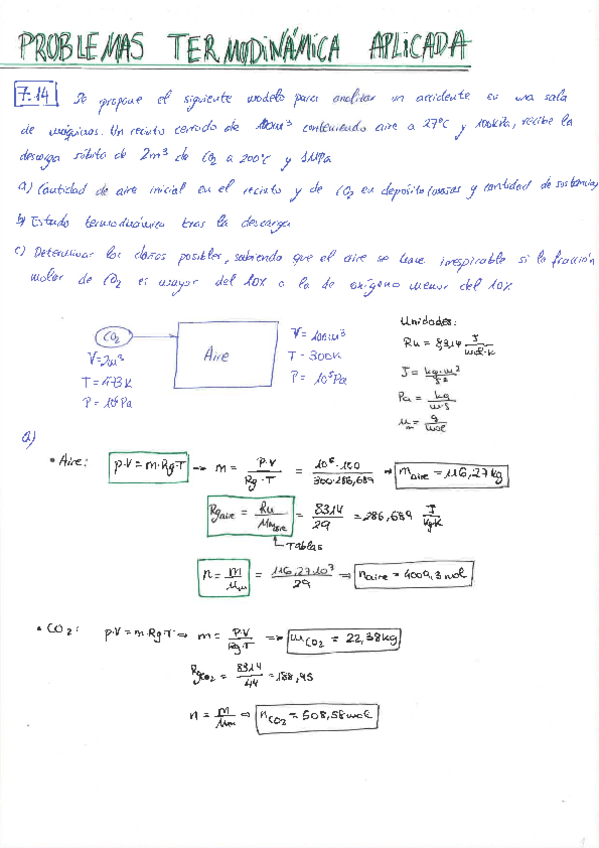 PROBLEMAS TERMODINÁMICA APLICADA
7.14 Se propone el siguiente modelo para analizar un accidente en una sala
de máquinas. Un recinto cerrado de 100m³ conteniendo aire a 27ºC y 100kPa, recibe la
descarga súbita de 2m³ de CO2 a 200ºC y 1MPa
a) Cantidad de aire inicial en el recinto y de CO2 en depósito (masas y cantidad de sustancia)
b) Estado termodinámico tras la descarga
c) Determinar los daños posibles, sabiendo que el aire se hace irrespirable si la fracción
molar de CO2 es mayor del 10% o la de oxígeno menor del 10%
CO2
V=2m³
T=473K
P=10⁶Pa
Aire
V=100m³
T=300K
P=10⁵Pa
Unidades:
Ru = 8,314 J/mol·K
J = kg·m²/s²
Pa = kg/m·s
μm = g/mol
a)
• Aire: p·V = m·Rg·T → m = P·V/Rg·T = 10⁵·100/300·286,689 → maire = 116,27kg
Rgaire = Ru/μmaire = 8314/29 = 286,689 J/kg·K
Tablas
n = m/μm = 116,27·10³/29 ⇒ naire = 4009,3 mol
• CO2: p·V = m·Rg·T ⇒ m = P·V/Rg·T ⇒ mCO2 = 22,38kg
RgCO2 = 8314/44 = 188,95
n = m/μm ⇒ nCO2 = 508,58 mol
1